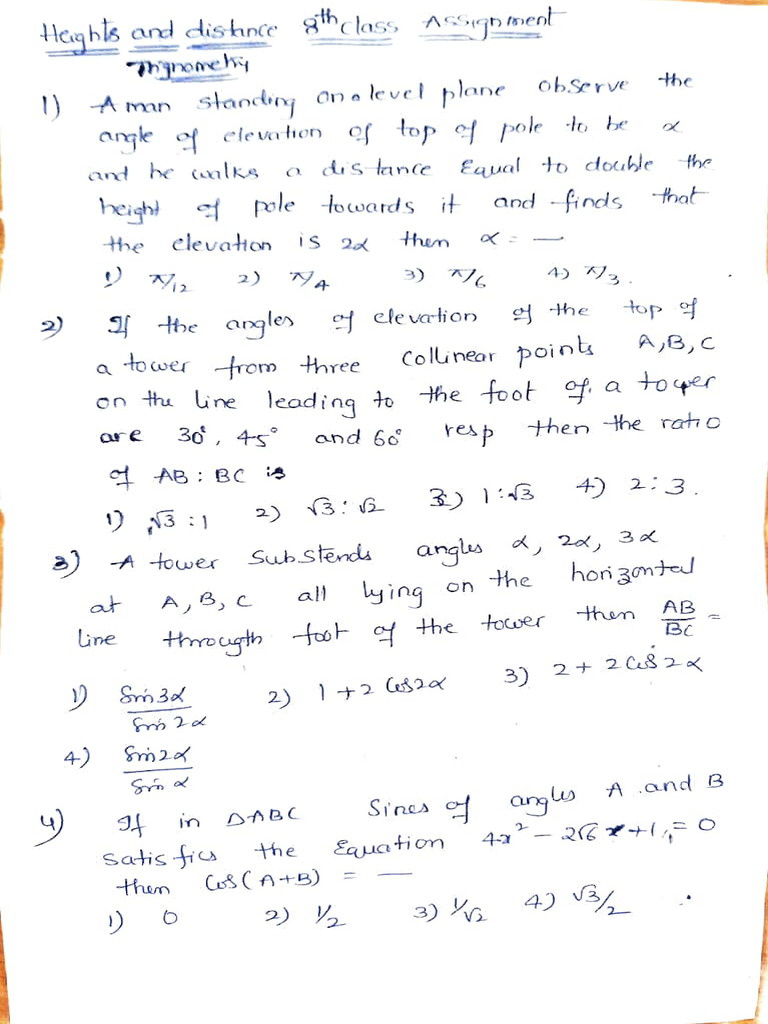 Heights and distance 8th class Assignment
Trignometry
1) A man standing on a level plane observe the
angle of elevation of top of pole to be α
and he walks a distance Equal to double the
height of pole towards it and finds that
the elevation is 2α then α = —
1) π/12 2) π/4 3) π/6 4) π/3.
2) If the angles of elevation of the top of
a tower from three Collinear points A, B, C
on the line leading to the foot of a tower
are 30°, 45° and 60° resp then the ratio
of AB : BC is
1) √3 : 1 2) √3 : √2 3) 1 : √3 4) 2 : 3.
3) A tower Substends angles α, 2α, 3α
at A, B, C all lying on the horizontal
line througth foot of the tower then AB/BC =
1) Sin3α/Sin2α 2) 1 + 2 Cos2α 3) 2 + 2 Cos2α
4) Sin2α/Sinα
4) If in ΔABC Sines of angles A and B
Satisfies the Equation 4x² − 2√6 x + 1 = 0
then Cos(A+B) = —
1) 0 2) 1/2 3) 1/√2 4) √3/2